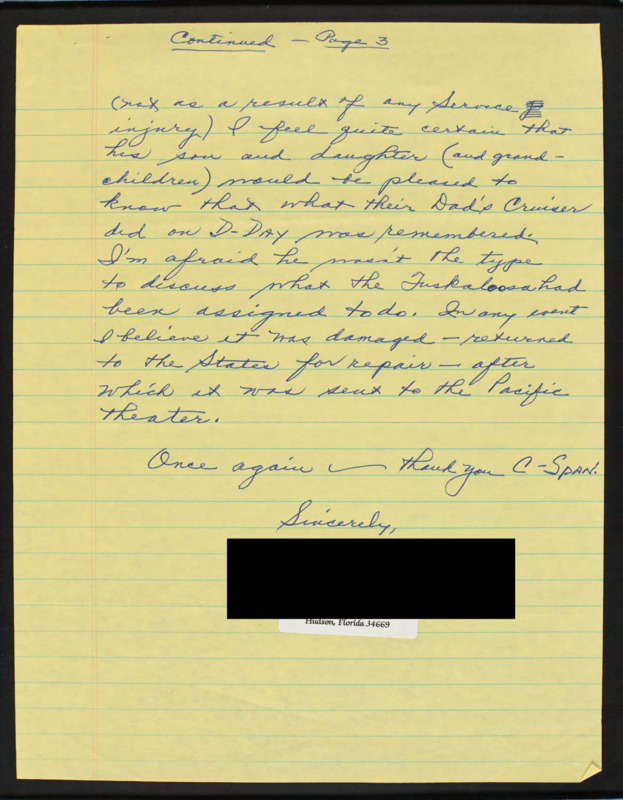 Continued — Page 3
(not as a result of any Service
injury) I feel quite certain that
his son and daughter (and grand-
children) would be pleased to
know that what their Dad's Cruiser
did on D-DAY was remembered.
I'm afraid he wasn't the type
to discuss what the Tuskaloosa had
been assigned to do. In any event
I believe it was damaged — returned
to the States for repair — after
which it was sent to the Pacific
theater.
Once again — thank you C-SPAN.
Sincerely,
Hudson, Florida 34669